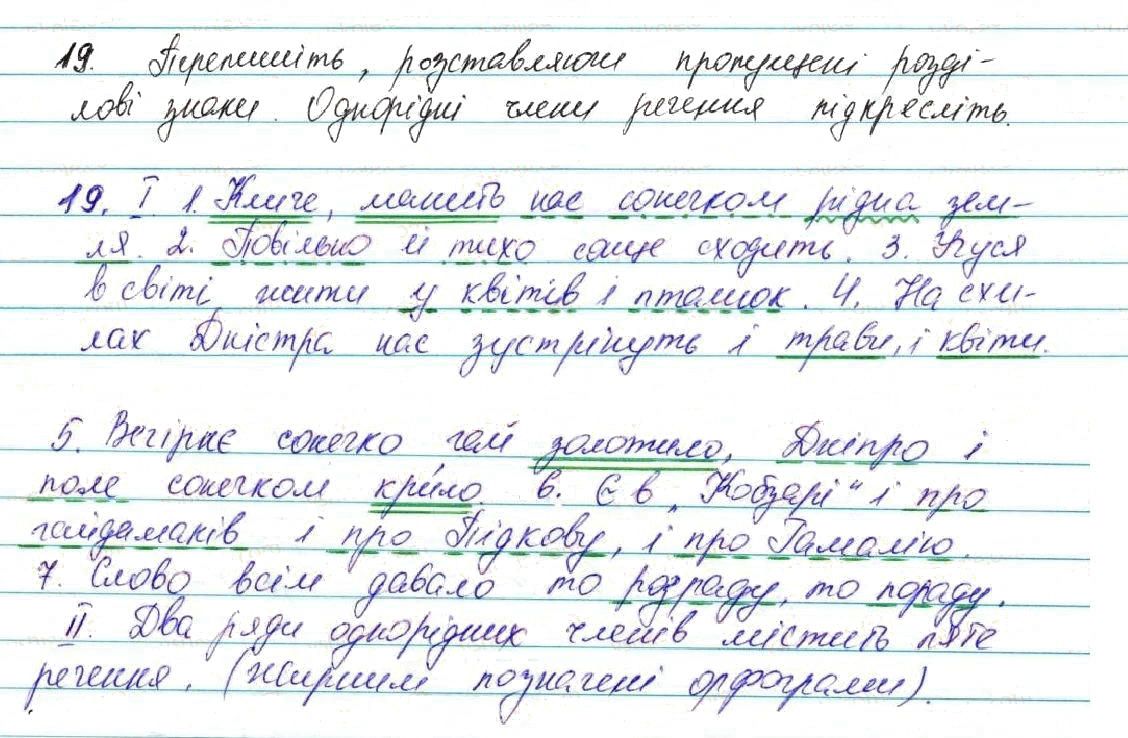 19. Перепишіть, розставляючи пропущені розді-
лові знаки. Однорідні члени речення підкресліть.
19. I. 1. Кличе, манить нас сонечком рідна зем-
ля. 2. Повільно й тихо сонце сходить. 3. Учуся
в світі жити у квітів і пташок. 4. На схи-
лах Дністра нас зустрінуть і трави, і квіти.
5. Вечірнє сонечко гай золотило, Дніпро і
поле сонечком крило. 6. Є в „Кобзарі" і про
гайдамаків і про Підкову, і про Гамалію.
7. Слово всім давало то розраду, то пораду.
II. Два ряди однорідних членів містить п'яте
речення. (Жирним позначені орфограми).